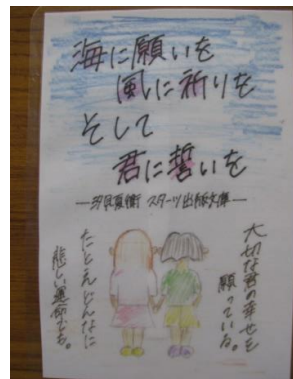 海に願いを
風に祈りを
そして
君に誓いを
―汐見夏衛 スターツ出版文庫―
大切な君の幸せを
願っている。
たとえどんなに
悲しい運命でも。